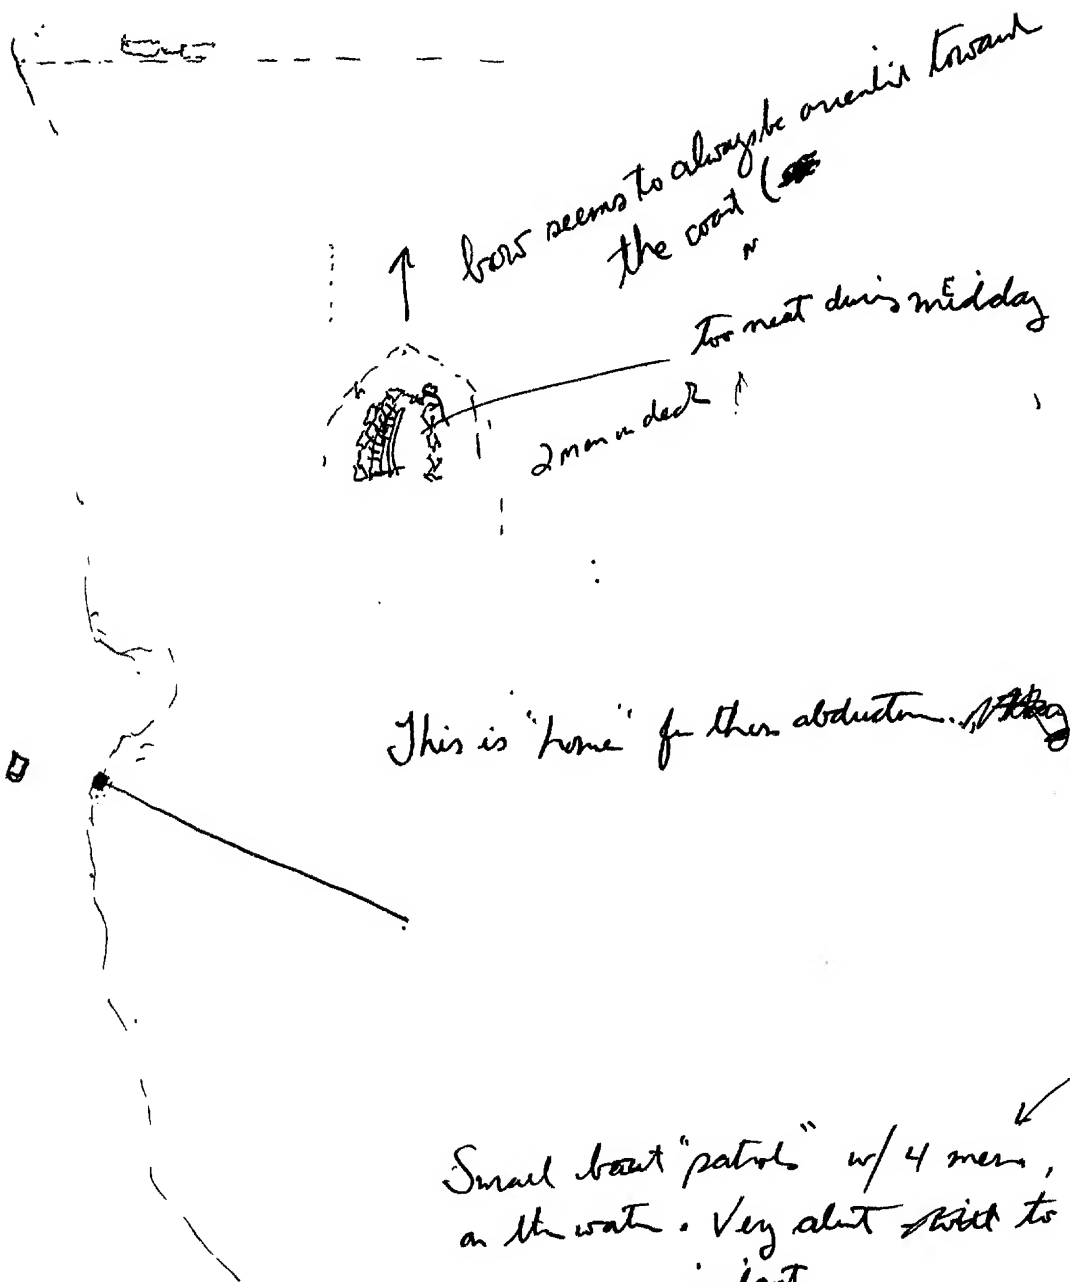 bow seems to always be toward
the coast (
N
too neat during mEdday
2 men on deck
This is "home" for abduction.
Small boat "patrols" w/ 4 men,
on the water. Very alert to